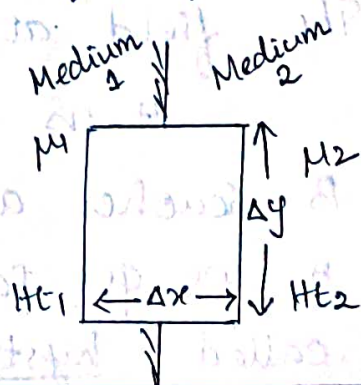 Medium 1
Medium 2
μ1
μ2
Δy
Ht1
Δx
Ht2